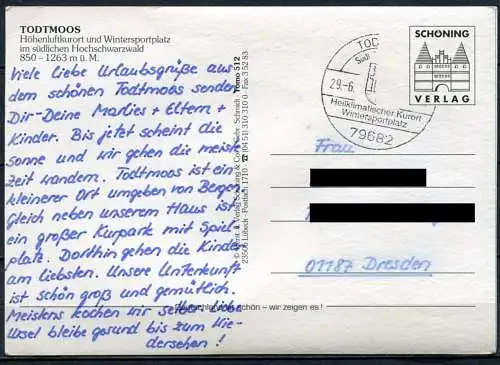 TODTMOOS
Höhenluftkurort und Wintersportplatz
im südlichen Hochschwarzwald
850 – 1263 m ü. M.
Viele liebe Urlaubsgrüße aus
dem schönen Todtmoos senden
Dir - Deine Marlies + Eltern +
Kinder. Bis jetzt scheint die
Sonne und wir gehen die meiste
Zeit wandern. Todtmoos ist ein
kleinerer Ort umgeben von Bergen.
Gleich neben unserem Haus ist
ein großer Kurpark mit Spiel-
platz. Dorthin gehen die Kinder
am liebsten. Unsere Unterkunft
ist schön groß und gemütlich.
Meistens kochen wir selber. Liebe
Ursel bleibe gesund bis zum Wie-
dersehen!
© Verlag Schöning & Co + Gebr. Schmidt
23506 Lübeck · Postfach 1710 · ☎ (04 51) 310 310 · Fax 3 52 83
Tomo 512
schön – wir zeigen es!
TOD
29.-6.
Heilklimatischer Kurort
Wintersportplatz
79682
SCHÖNING
VERLAG
Frau
01187 Dresden